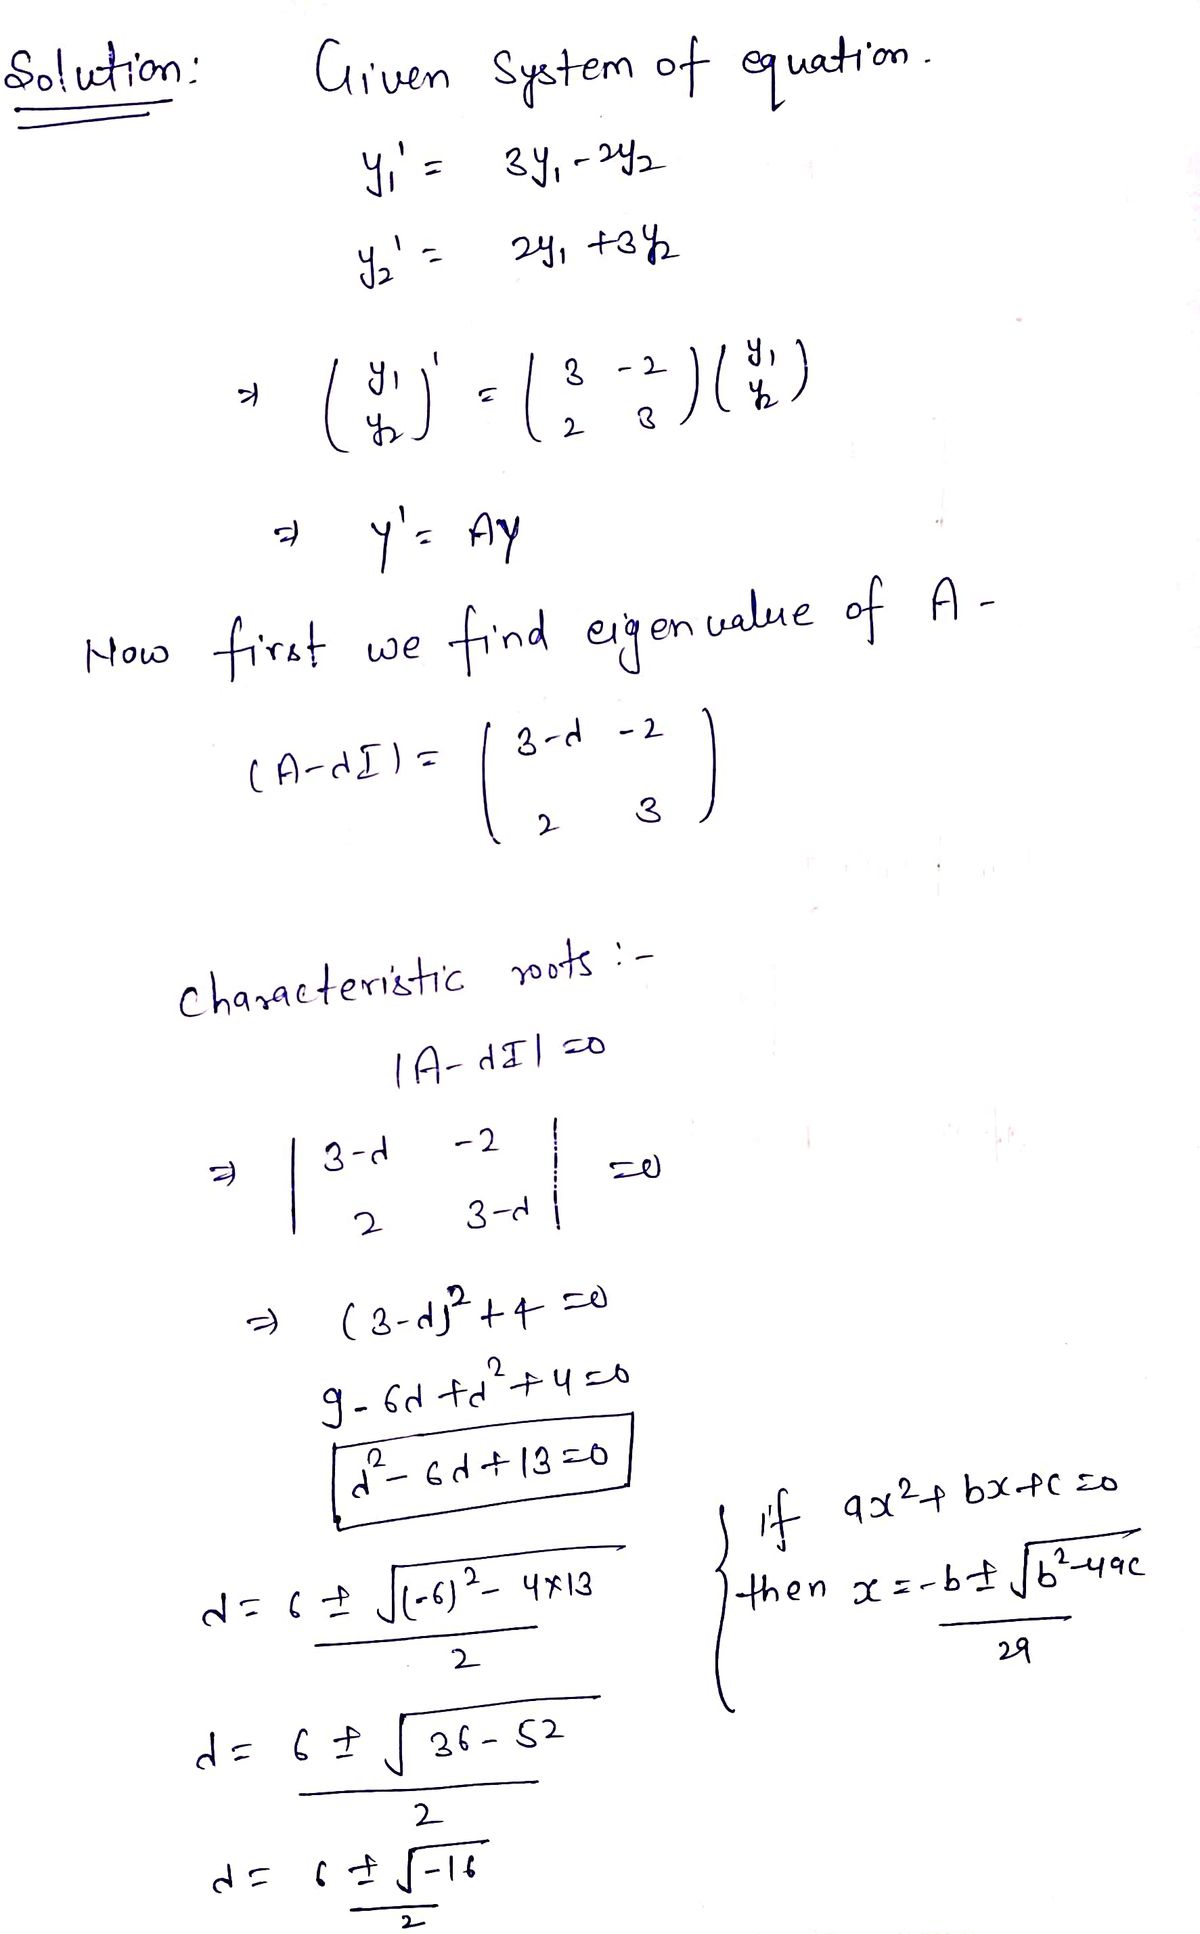 Solution: Given System of equation.
y₁' = 3y₁ - 2y₂
y₂' = 2y₁ + 3y₂
⇒ (y₁ y₂)' = (3 -2 2 3) (y₁ y₂)
⇒ Y' = AY
Now first we find eigen value of A -
(A-dI) = (3-d -2 2 3)
Characteristic roots :-
|A-dI| = 0
⇒ |3-d -2 2 3-d| = 0
⇒ (3-d)² + 4 = 0
9 - 6d + d² + 4 = 0
d² - 6d + 13 = 0
{ if ax² + bx + c = 0
then x = -b ± √b²-4ac / 2a
d = 6 ± √(-6)² - 4×13 / 2
d = 6 ± √36-52 / 2
d = 6 ± √-16 / 2